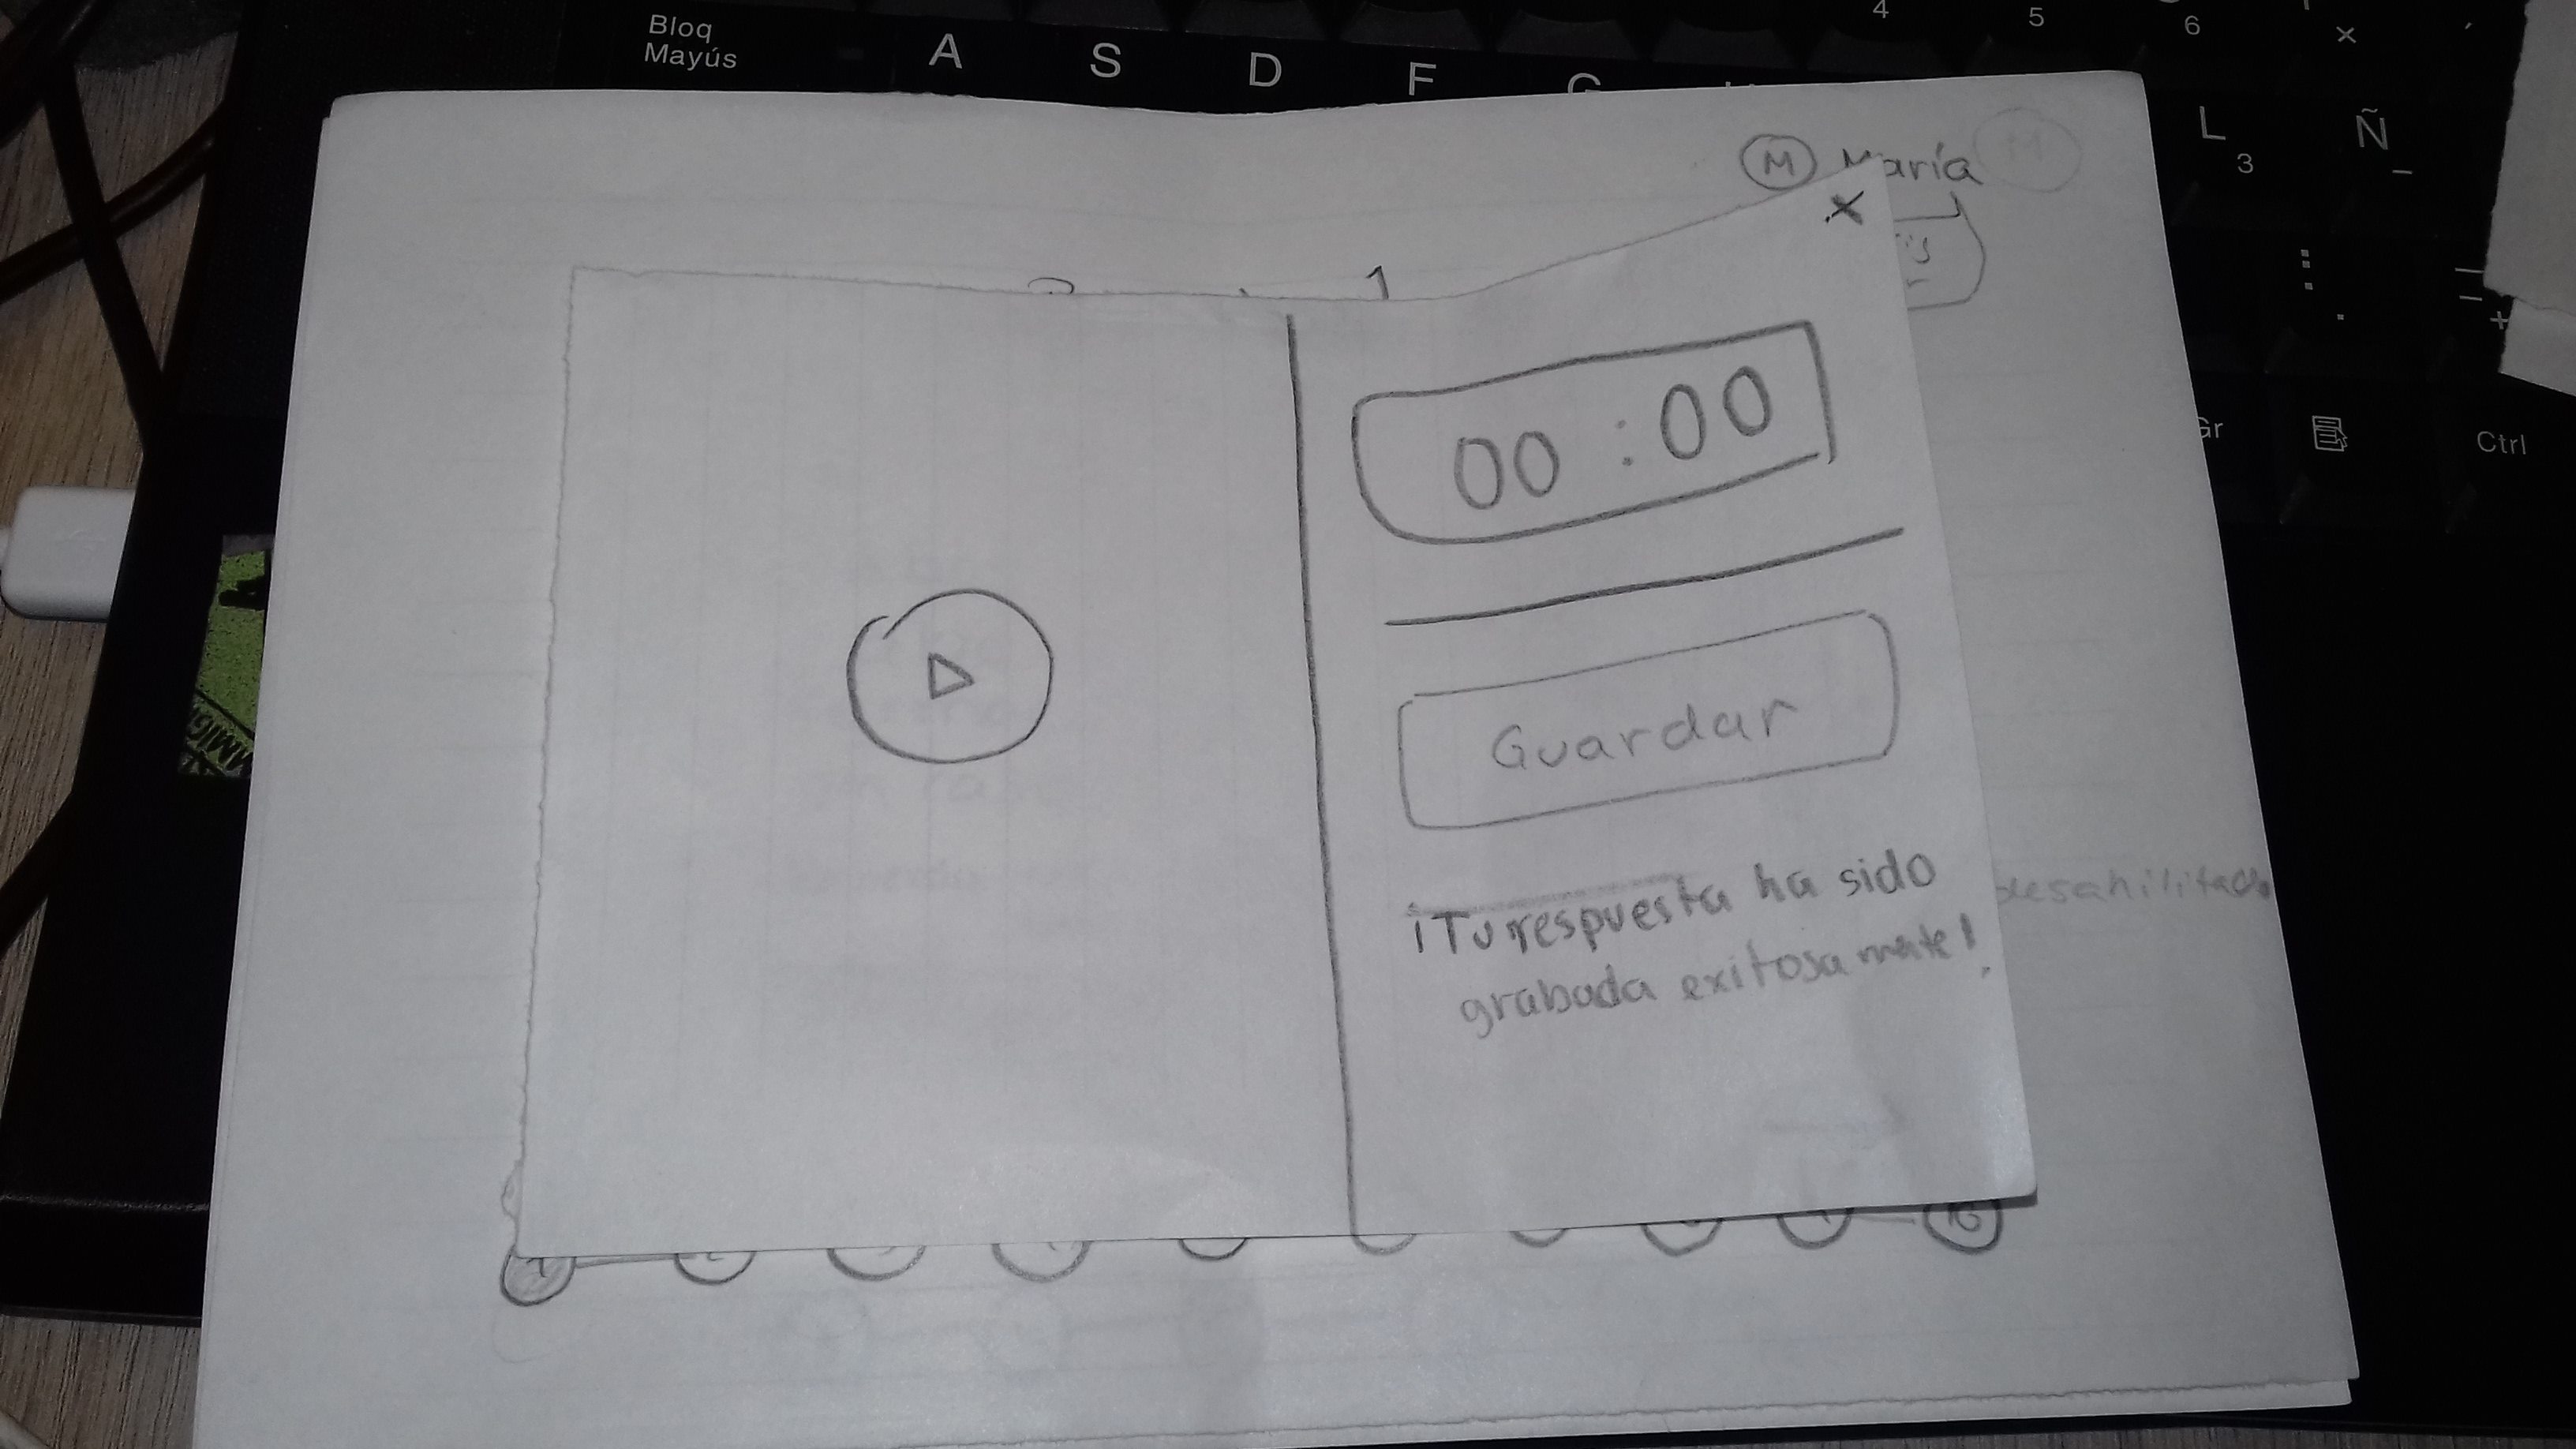 Bloq
Mayús
A S D F G
4 5 6 ×
L 3 Ñ
M María M
X
1
00 : 00
Gr Ctrl
Guardar
¡Tu respuesta ha sido
grabada exitosamente!
desahilitado
1 10